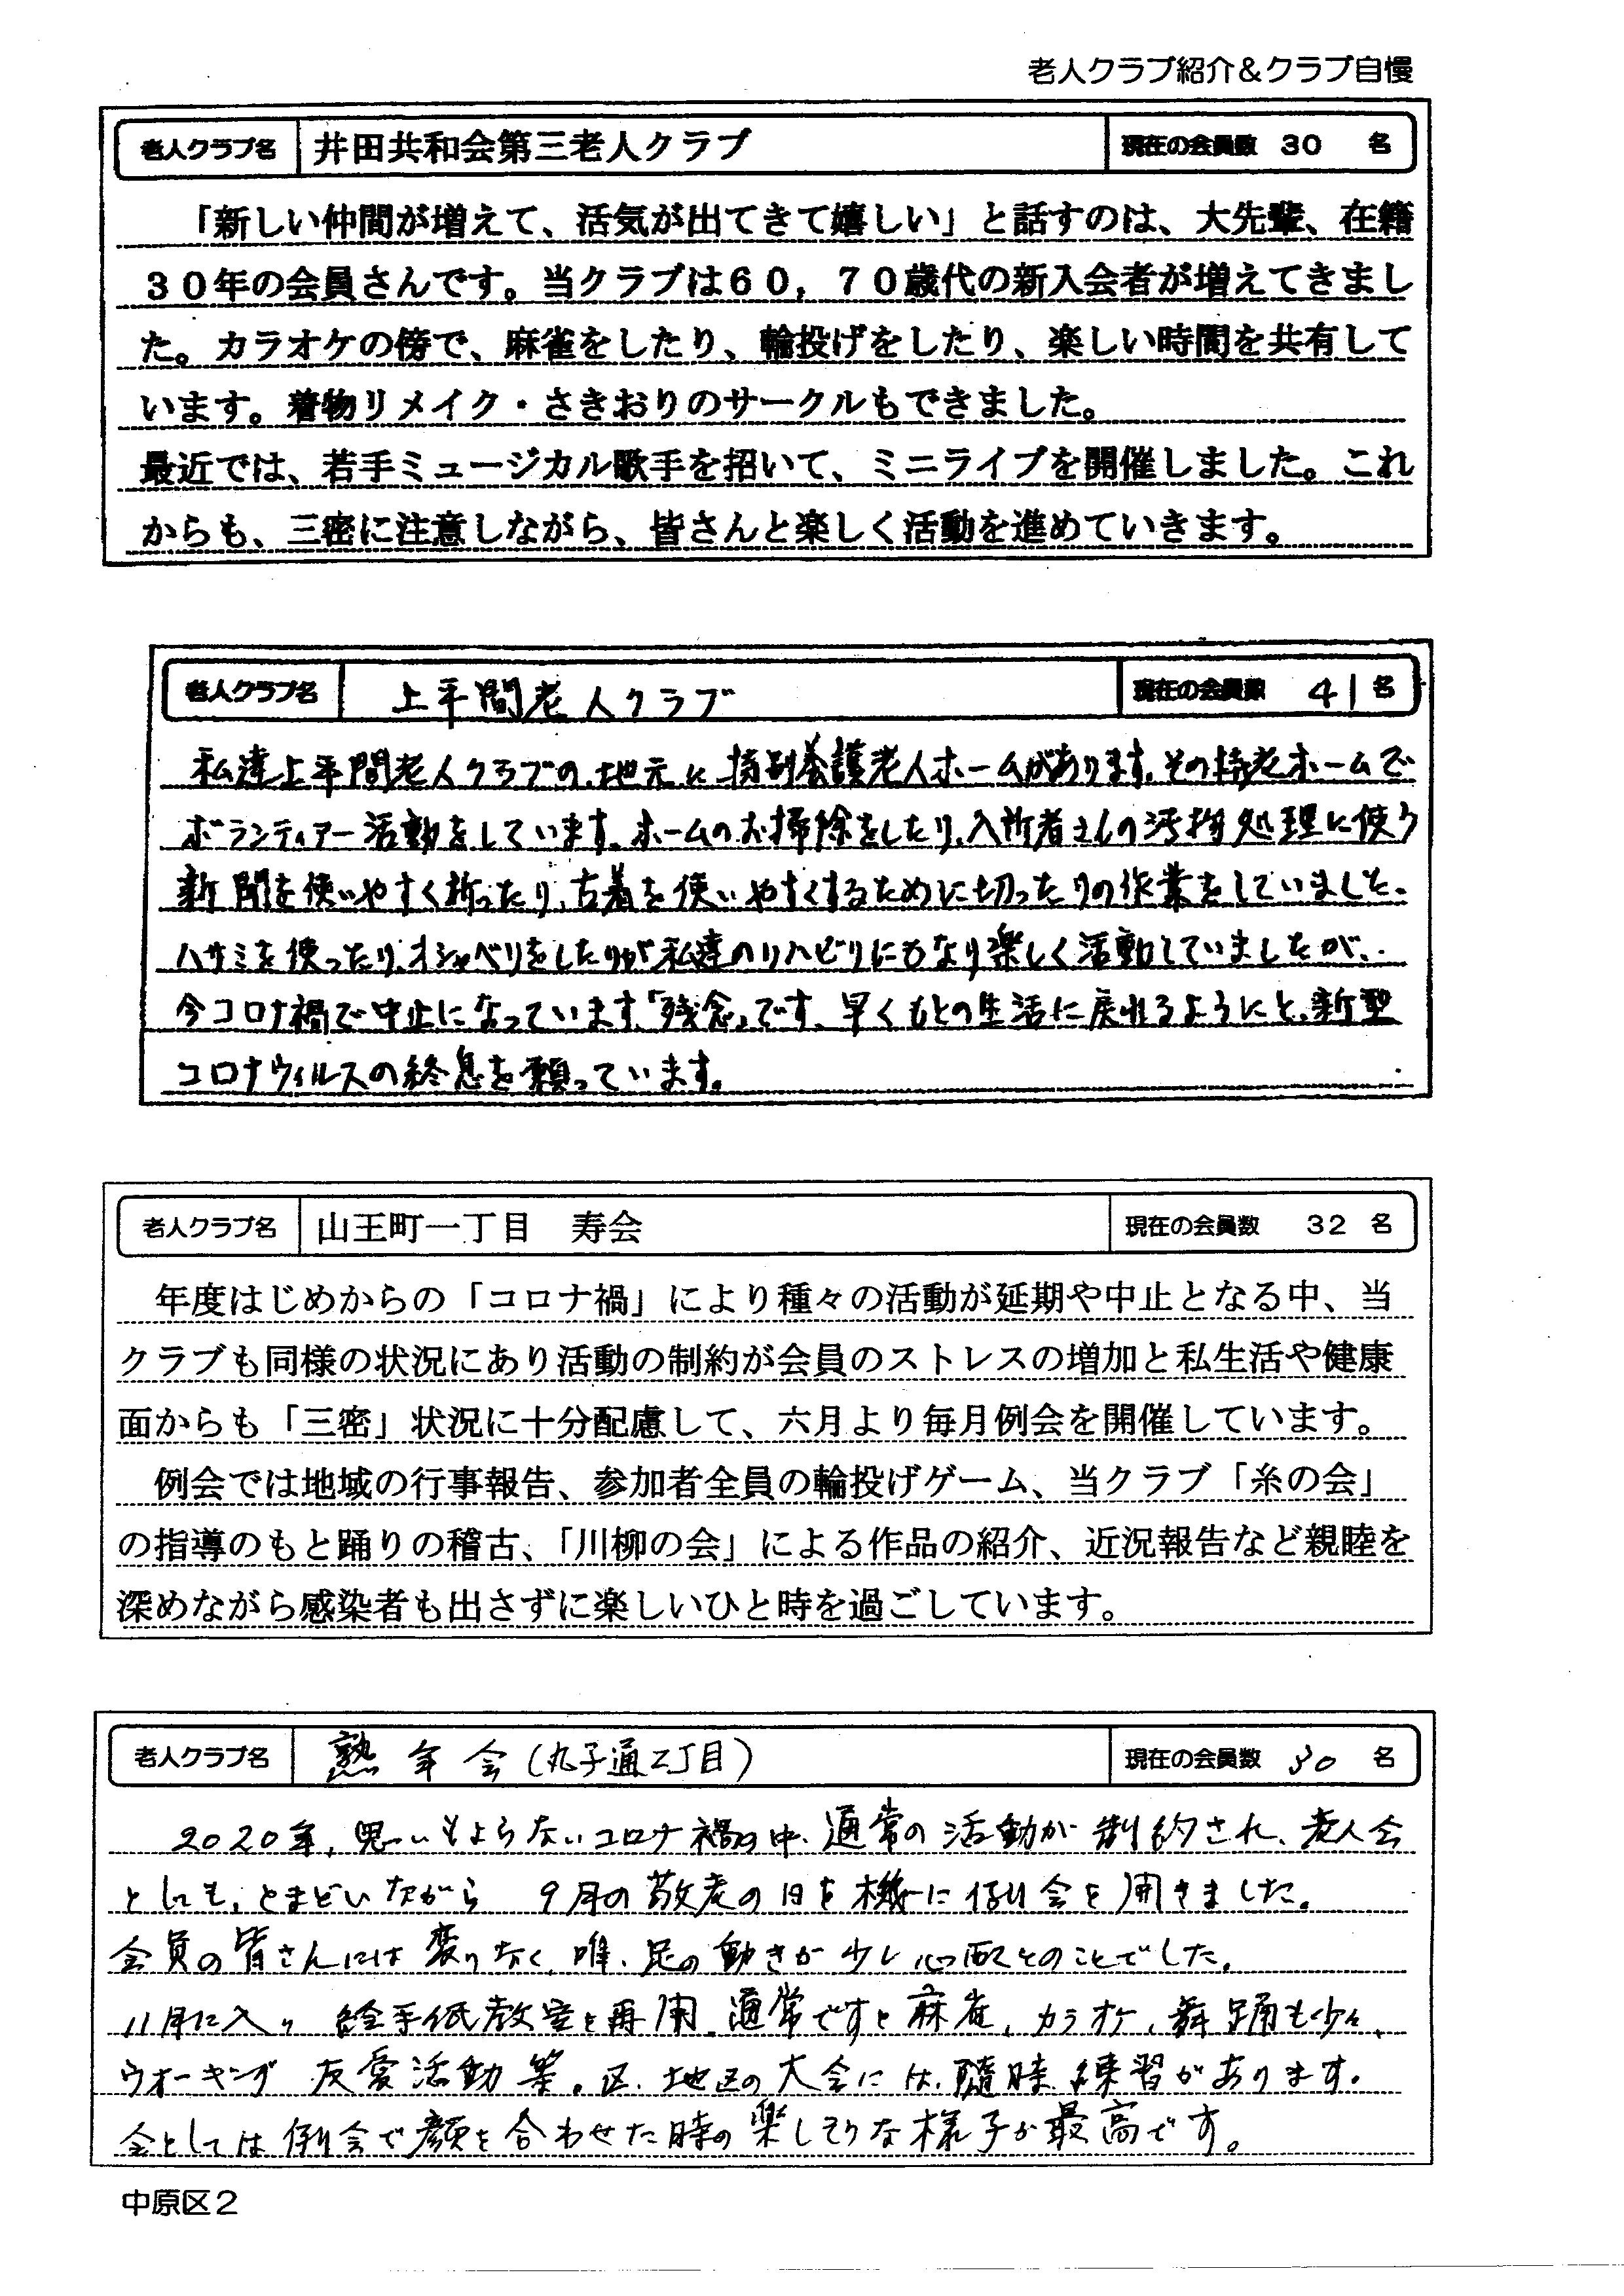 老人クラブ紹介＆クラブ自慢
老人クラブ名 井田共和会第三老人クラブ 現在の会員数 30 名
「新しい仲間が増えて、活気が出てきて嬉しい」と話すのは、大先輩、在籍
３０年の会員さんです。当クラブは６０，７０歳代の新入会者が増えてきまし
た。カラオケの傍で、麻雀をしたり、輪投げをしたり、楽しい時間を共有して
います。着物リメイク・さきおりのサークルもできました。
最近では、若手ミュージカル歌手を招いて、ミニライブを開催しました。これ
からも、三密に注意しながら、皆さんと楽しく活動を進めていきます。
老人クラブ名 上平間老人クラブ 現在の会員数 41 名
私達上平間老人クラブの地元に特別養護老人ホームがあります。その特老ホームで
ボランティアー活動をしています。ホームのお掃除をしたり、入所者さんの汚物処理に使う
新聞を使いやすく折ったり、古着を使いやすくするために切ったりの作業をしていました。
ハサミを使ったり、オシャベリをしたりが私達のリハビリにもなり楽しく活動していましたが、
今コロナ禍で中止になっています。「残念」です、早くもとの生活に戻れるようにと、新型
コロナウィルスの終息を願っています。
老人クラブ名 山王町一丁目 寿会 現在の会員数 32 名
年度はじめからの「コロナ禍」により種々の活動が延期や中止となる中、当
クラブも同様の状況にあり活動の制約が会員のストレスの増加と私生活や健康
面からも「三密」状況に十分配慮して、六月より毎月例会を開催しています。
例会では地域の行事報告、参加者全員の輪投げゲーム、当クラブ「糸の会」
の指導のもと踊りの稽古、「川柳の会」による作品の紹介、近況報告など親睦を
深めながら感染者も出さずに楽しいひと時を過ごしています。
老人クラブ名 熟年会（丸子通二丁目） 現在の会員数 30 名
2020年、思いもよらないコロナ禍の中、通常の活動が制約され、老人会
としても、とまどいながら 9月の敬老の日を機に例会を開きました。
会員の皆さんには変りなく、唯、足の動きが少し心配とのことでした。
11月に入り 絵手紙教室を再開。通常ですと麻雀、カラオケ、舞踊も少々、
ウオーキング 友愛活動等。区、地区の大会には、随時、練習があります。
会としては例会で顔を合わせた時の楽しそうな様子が最高です。
中原区２